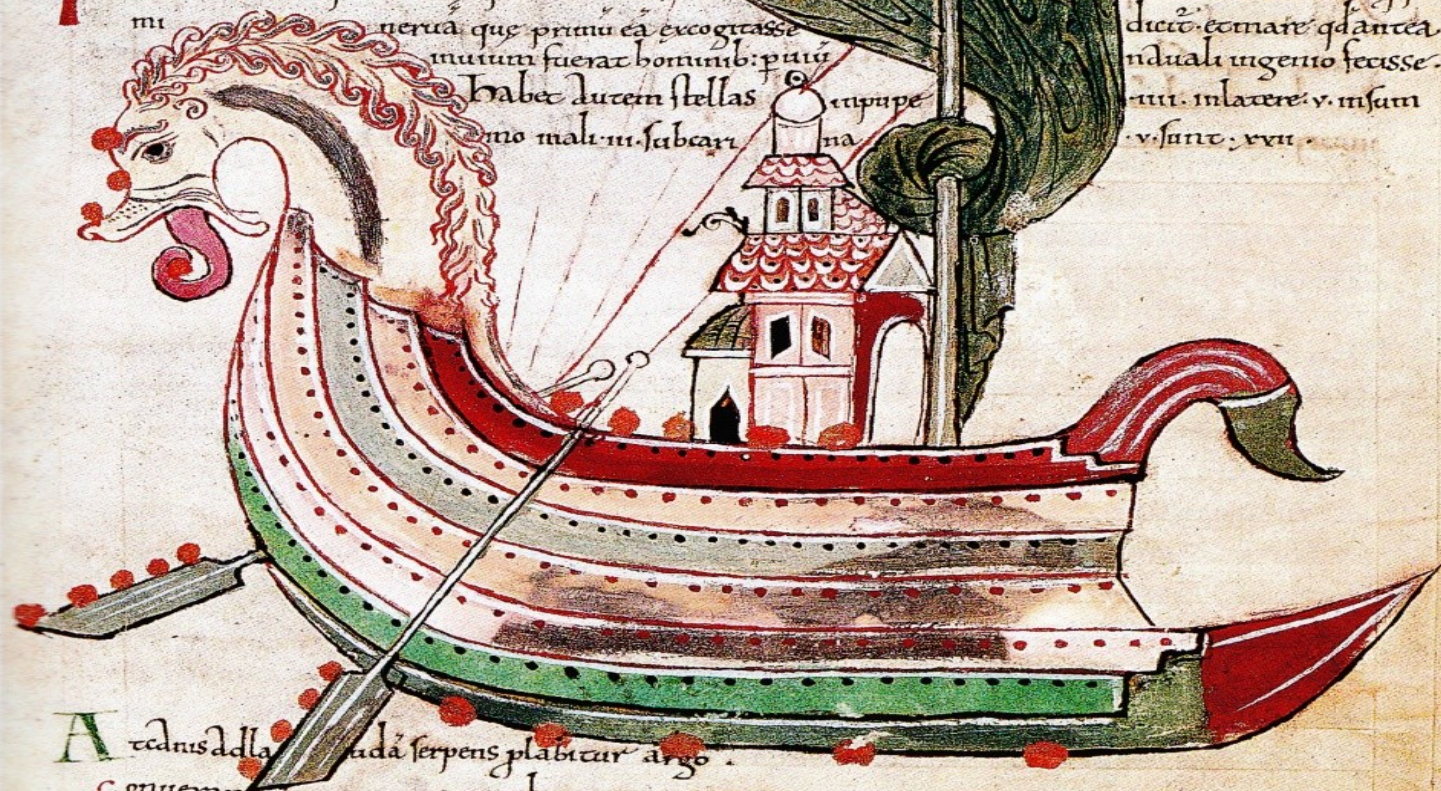 mi nerua que primu ea excogitasse dicit · et mare qd antea
inuium fuerat hominib: p uiu nauali ingenio fecisse ·
Habet autem stellas in pupe · iiii · in latere · v · in sum
mo mali · iii · sub cari na · v · sunt · xvii ·
At canis ad la uda serpens plabitur argo ·